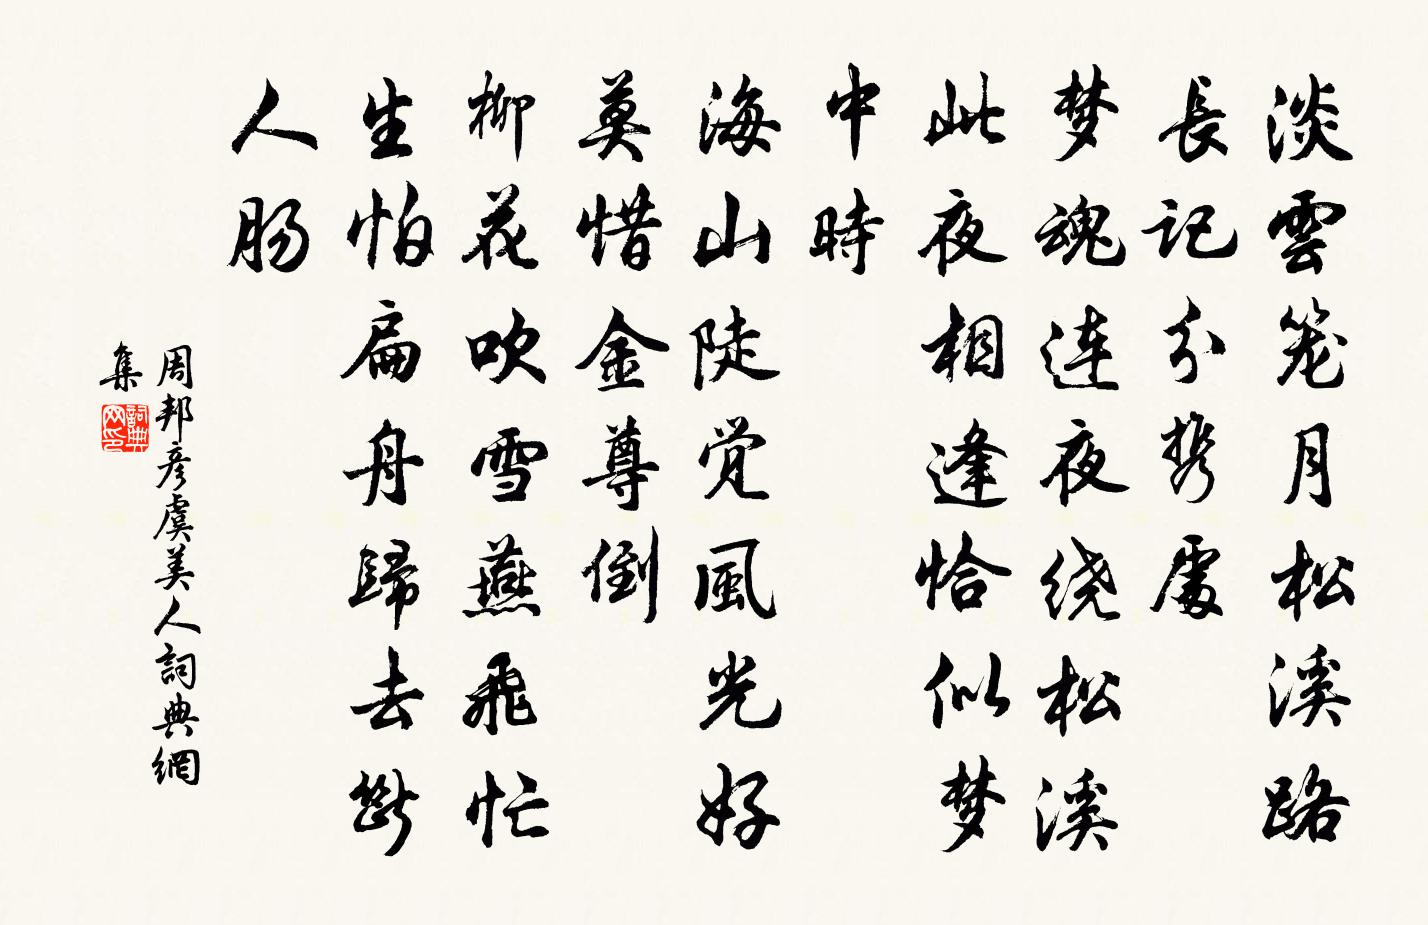 淡雲笼月松溪路
長記分携處
梦魂连夜绕松溪
此夜相逢恰似梦
中時
海山陡觉風光好
莫惜金尊倒
柳花吹雪燕飛忙
生怕扁舟歸去斷
人肠
周邦彦虞美人詞典網
集
詞典网印